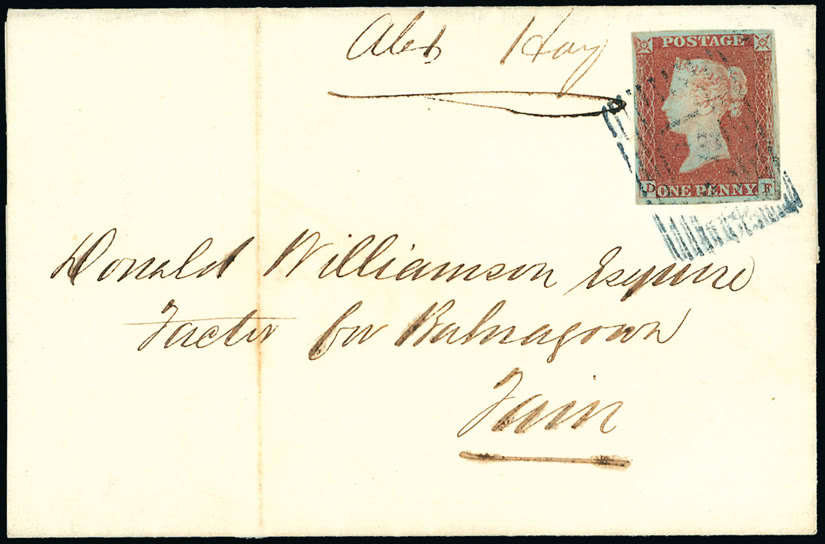 Alex Hay
POSTAGE
D ONE PENNY F
Donald Williamson Esquire
Factor for Balnagown
Tain